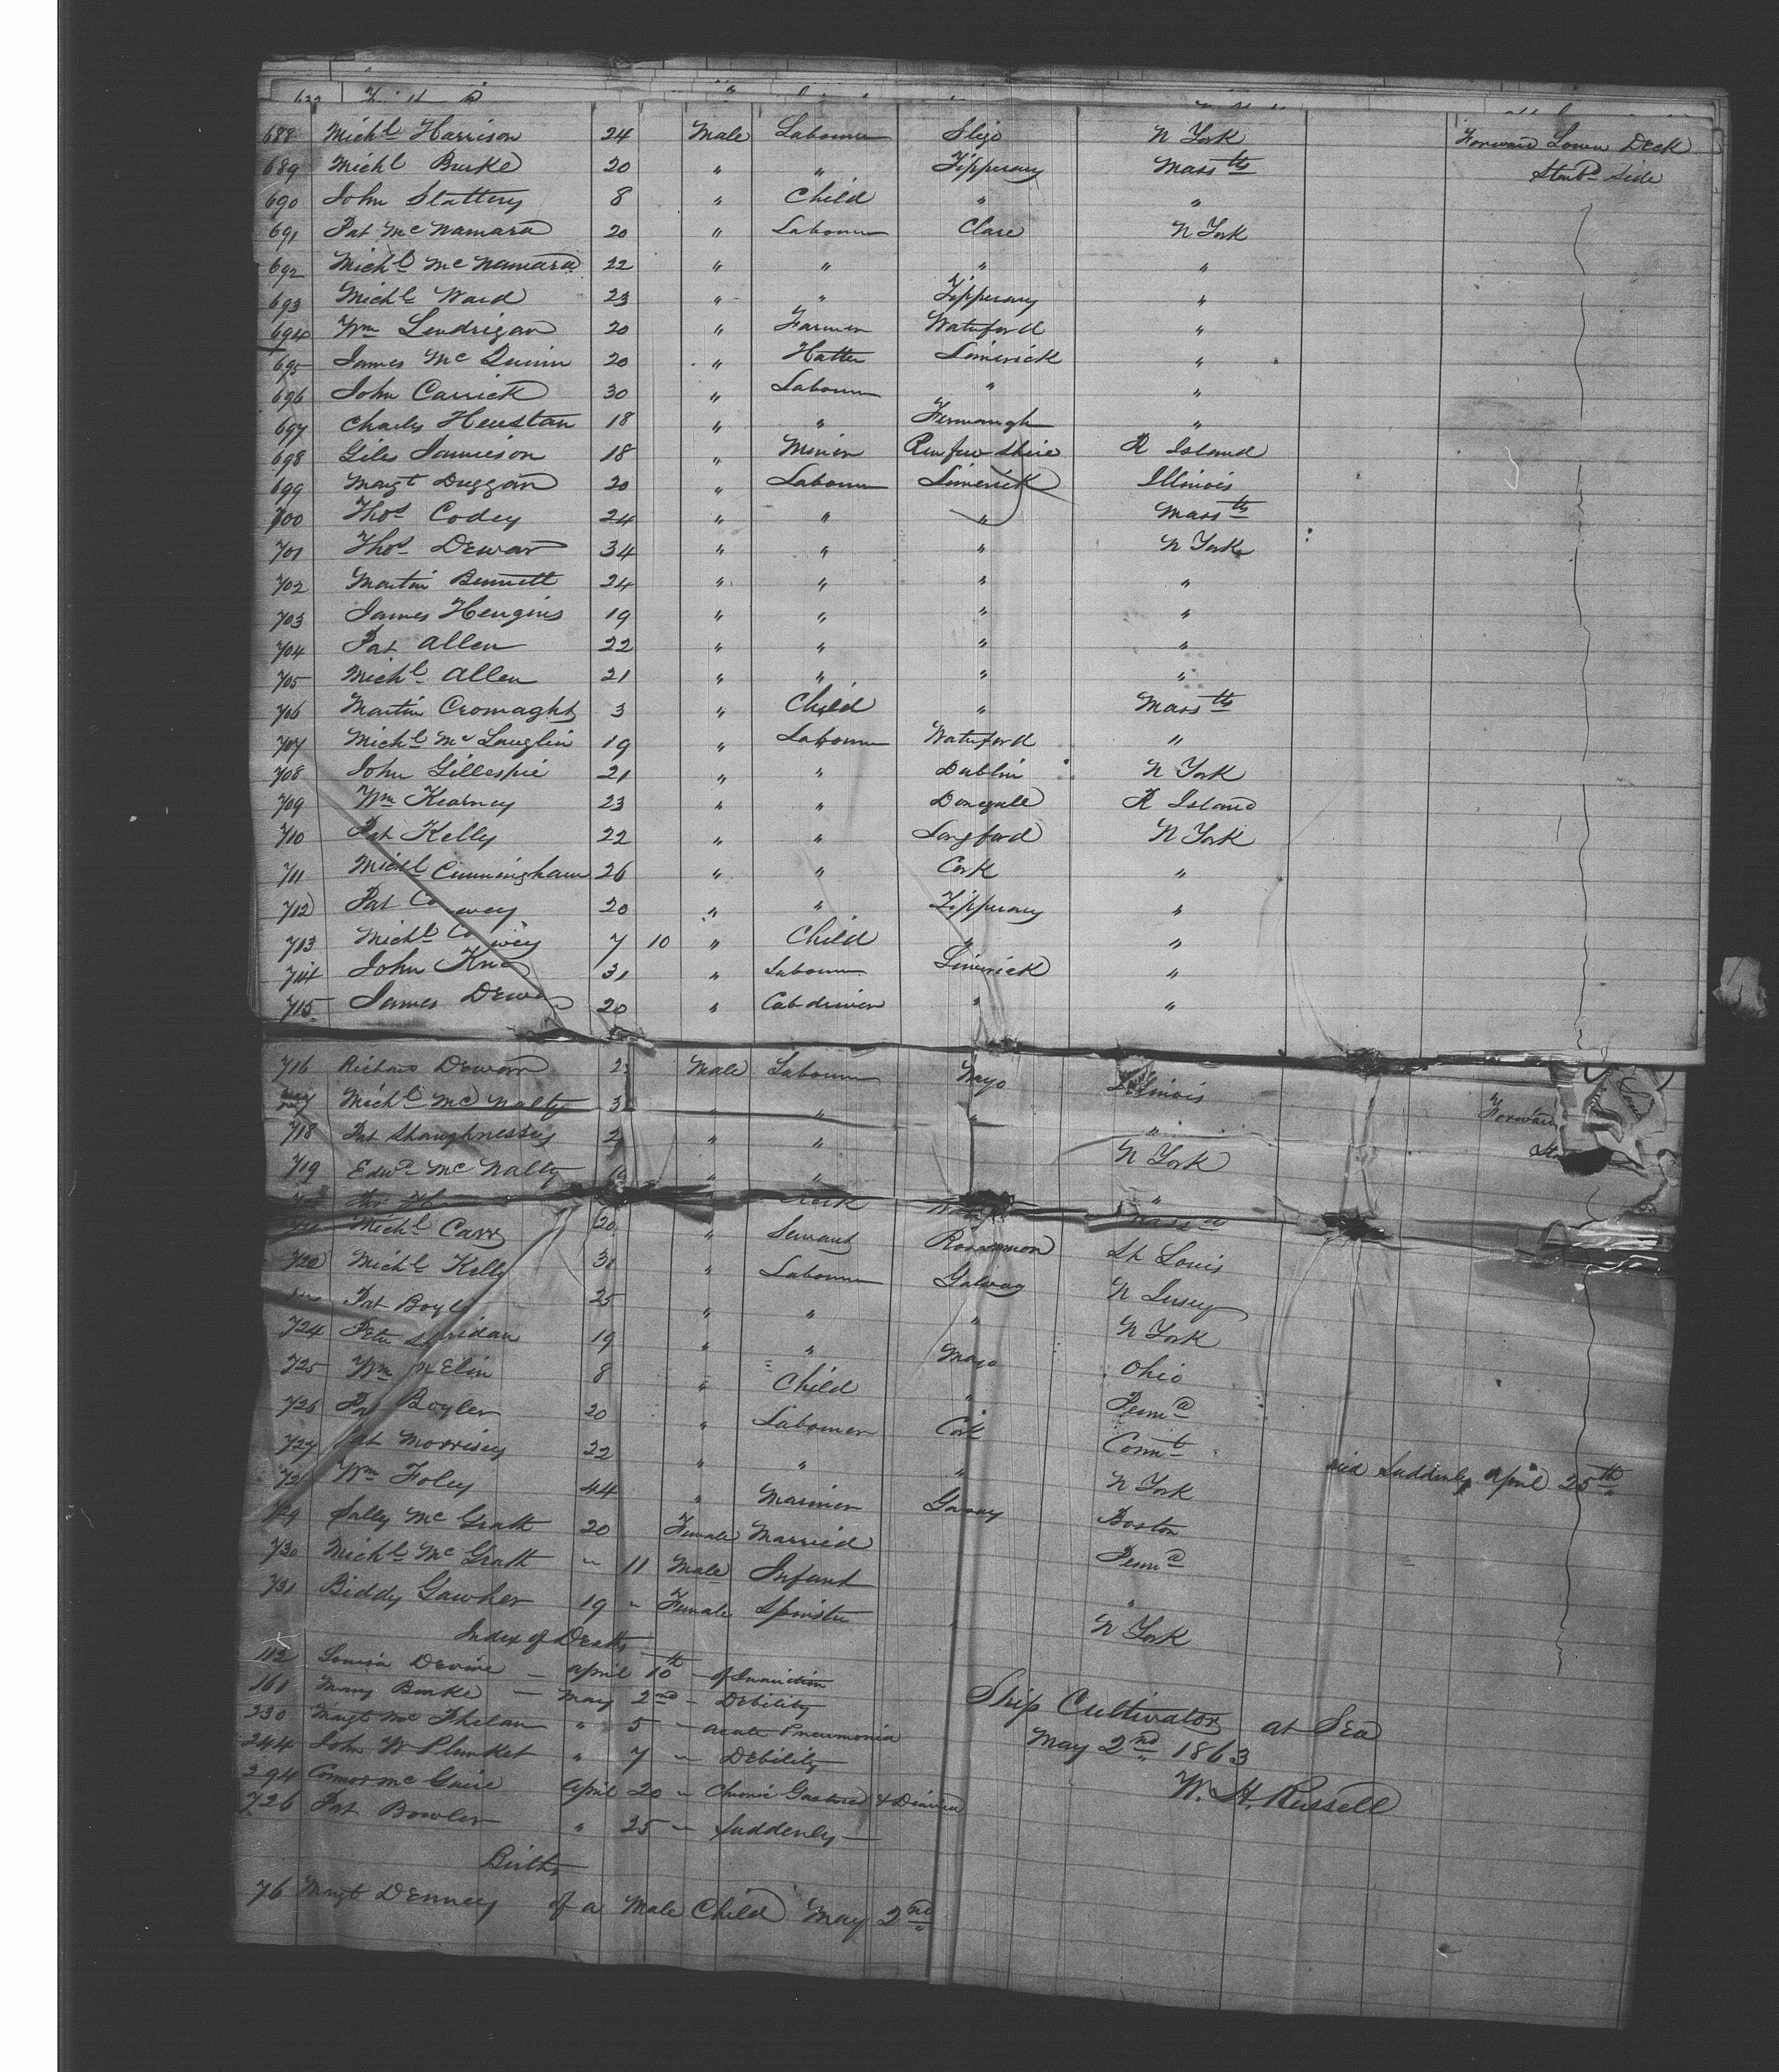 688 Michl Harrison 24 Male Labourer Sligo N York Forward Lower Deck
689 Michl Burke 20 " " Tipperary Massts Starbd Side
690 John Slattery 8 " Child " "
691 Pat McNamara 20 " Labourer Clare N York
692 Michl McNamara 22 " " " "
693 Michl Ward 23 " " Tipperary "
694 Wm Lendrigan 20 " Farmer Waterford "
695 James McQuinn 20 " Hatter Limerick "
696 John Carrick 30 " Labourer " "
697 Charles Heustan 18 " " Fermangh "
698 Giles Jamieson 18 " Minor Renfrew Shire R Island
699 Margt Duggan 20 " Labourer Limerick Illinois
700 Thos Codey 24 " " " Massts
701 Thos Dewar 34 " " " N York
702 Martin Bennett 24 " " " "
703 James Hengins 19 " " " "
704 Pat Allen 22 " " " "
705 Michl Allen 21 " " " "
706 Martin Cromaghty 3 " Child " Massts
707 Michl McLauglin 19 " Labourer Waterford "
708 John Gillespie 21 " " Dublin N York
709 Wm Kearney 23 " " Donegall R Island
710 Pat Kelly 22 " " Longford N York
711 Michl Cunningham 26 " " Cork "
712 Pat 20 " " Tipperary "
713 Michl 7 10 " Child " "
714 John 31 " Labourer Limerick "
715 James 20 " Cab driver " "
716 Richard Dewarn Male Labourer Mayo Illinois
Michl McNalty " " " " Forward
718 Pat Shaughnessy " " N York
719 Edwd McNalty " " "
Michl Carr 20 " Servant Roscommon St Louis
Michl Kelly 30 " Labourer Galway N Jersey
Pat Boyle 25 " " " N York
724 Peter Sheridan 19 " " Mayo Ohio
725 Wm 8 " Child " Penna
726 Pat Bowler 20 " Labourer Cork Connt died Suddenly April 25th
727 Pat Morrisey 22 " " " N York
Wm Foley 44 " Mariner Galway Boston
729 Sally McGrath 20 Female Married Penna
730 Michl McGrath " 11 Male Infant "
731 Biddy Gawher 19 " Female Spinster " N York
Index of Deaths
112 Louisa Devine — April 10th — of Inanition
161 Mary Burke — May 2nd — Debility
230 Margt McPhelan " 5 — acute Pneumonia
244 John W Plunket " 7 — Debility
294 Connor McGuire April 20 — Chronic &
726 Pat Bowler " 25 — Suddenly —
Ship Cultivator at Sea
May 2nd 1863
W. H. Russell
Births
76 Margt Denney of a Male Child May 2nd